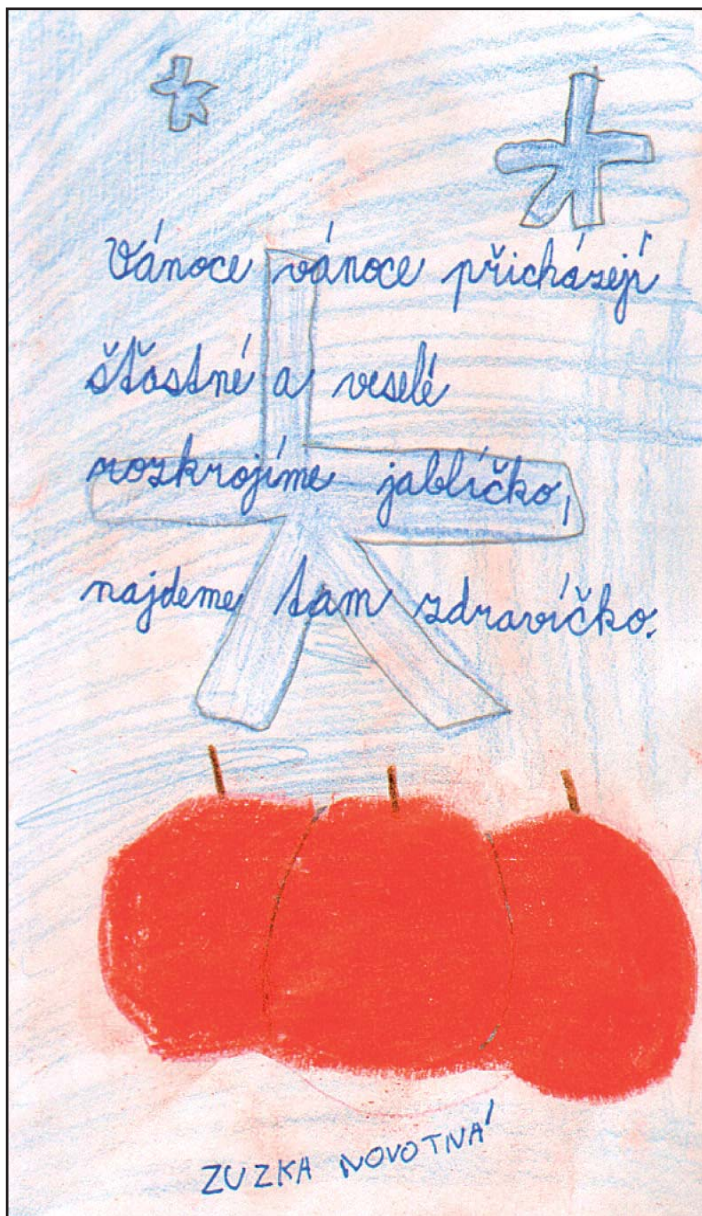 Vánoce vánoce přicházejí
šťastné a veselé
rozkrojíme jablíčko,
najdeme tam zdravíčko.
ZUZKA NOVOTNÁ